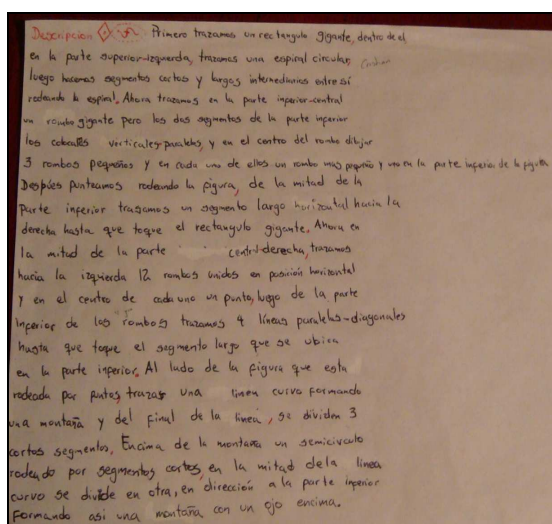 Descripcion Primero trazamos un rectangulo gigante, dentro de el
en la parte superior-izquierda, trazamos una espiral circular,
luego hacemos segmentos cortos y largos intermedianios entre sí
rodeando la espiral. Ahora trazamos en la parte inperior-central
un rombo gigante pero los dos segmentos de la parte inperior
los colocarás verticales-paralelos, y en el centro del rombo dibujar
3 rombos pequeños y en cada uno de ellos un rombo mas pequeño y uno en la parte inperior de la figura
Después punteamos rodeando la figura, de la mitad de la
parte inferior trasamos un segmento largo horizontal hacia la
derecha hasta que toque el rectangulo gigante. Ahora en
la mitad de la parte central-derecha, trazamos
hacia la izquierda 12 rombos unidos en posición horizontal
y en el centro de cada uno un punto, luego de la parte
Inperior de los rombos trazamos 9 líneas paralelas-diagonales
hasta que toque el segmento largo que se ubica
en la parte inperior. Al lado de la figura que esta
rodeada por puntos, trazas una linea curva formando
una montaña y del final de la linea, se dividen 3
cortos segmentos, Encima de la montaña un semicirculo
rodeado por segmentos cortos, en la mitad de la linea
curvo se divide en otra, en dirección a la parte inperior
formando asi una montaña con un ojo encima.